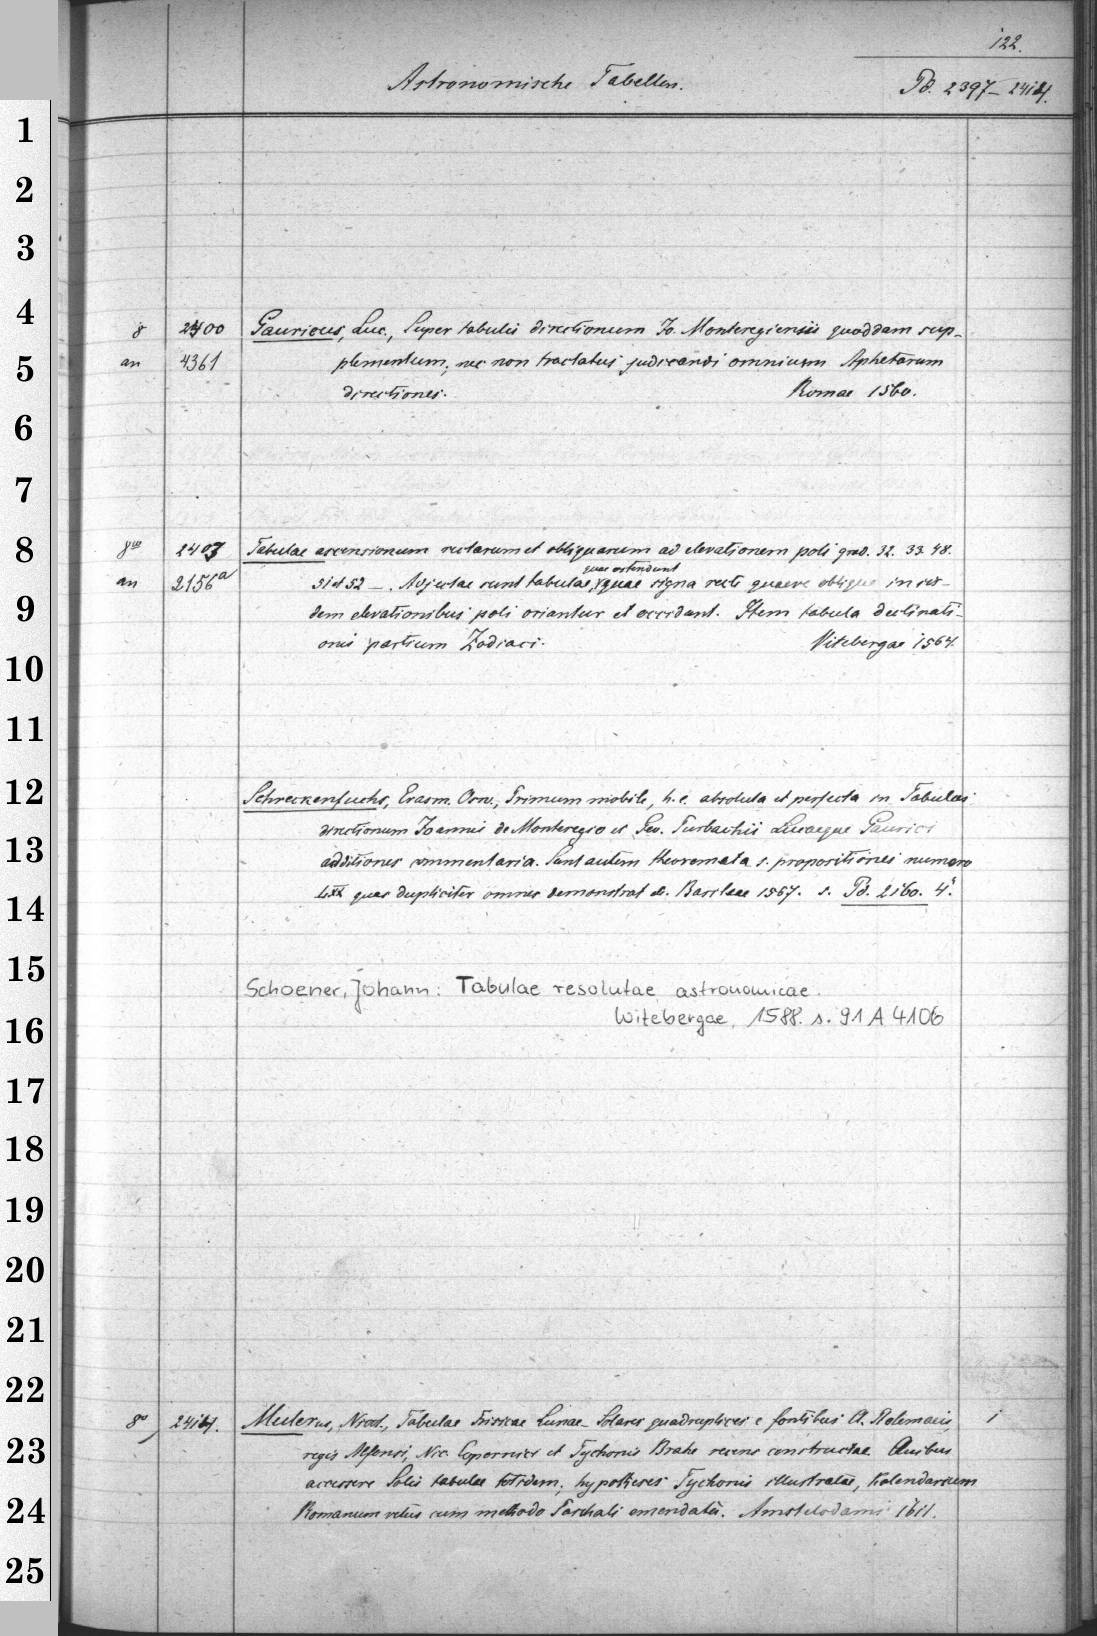 122.
Astronomische Tabellen. Pd. 2397–2414.
1
2
3
4
8 2400 Gauricus, Luc., Super tabulis directionum Jo. Monteregiensis quaddam sup-
5
an 4361 plementum, nec non tractatus judicandi omnium Aphetarum
directiones. Romae 1560.
6
7
8
8vo 2407 Tabulae ascensionum rectarum et obliquarum ad elevationem poli grad. 32. 33. 48.
quae ostendunt
an 2156a 51 et 52 –. Adjectae sunt tabulae, quae signa recte quaeve oblique in iis-
9
dem elevationibus poli oriantur et occidant. Item tabula declinati-
onis partium Zodiaci. Vitebergae 1564.
10
11
12
Schreckenfuchs, Erasm. Osw., Primum mobile, h. e. absoluta et perfecta in Tabulas
directionum Joannis de Monteregio et Geo. Purbachii Lucaeque Gaurici
13
additiones commentaria. Sunt autem theoremata s. propositiones numero
LXX quas dupliciter omnes demonstrat Basileae 1567. s. Pd. 2160. 4°.
14
15
Schoener, Johann: Tabulae resolutae astronomicae.
Witebergae, 1588. s. 91 A 4106
16
17
18
19
20
21
22
8° 2414. Mulerus, Nicol., Tabulae Frisicae Lunae-Solares quadruplices e fontibus Cl. Ptolemaei, 1
23
regis Alfonsi, Nic. Copernici et Tychonis Brahe recens constructae Quibus
accessere Solis tabulae totidem; hypotheses Tychonis illustratae, Kalendarium
24
Romanum vetus cum methodo Paschali emendata. Amstelodami 1611.
25